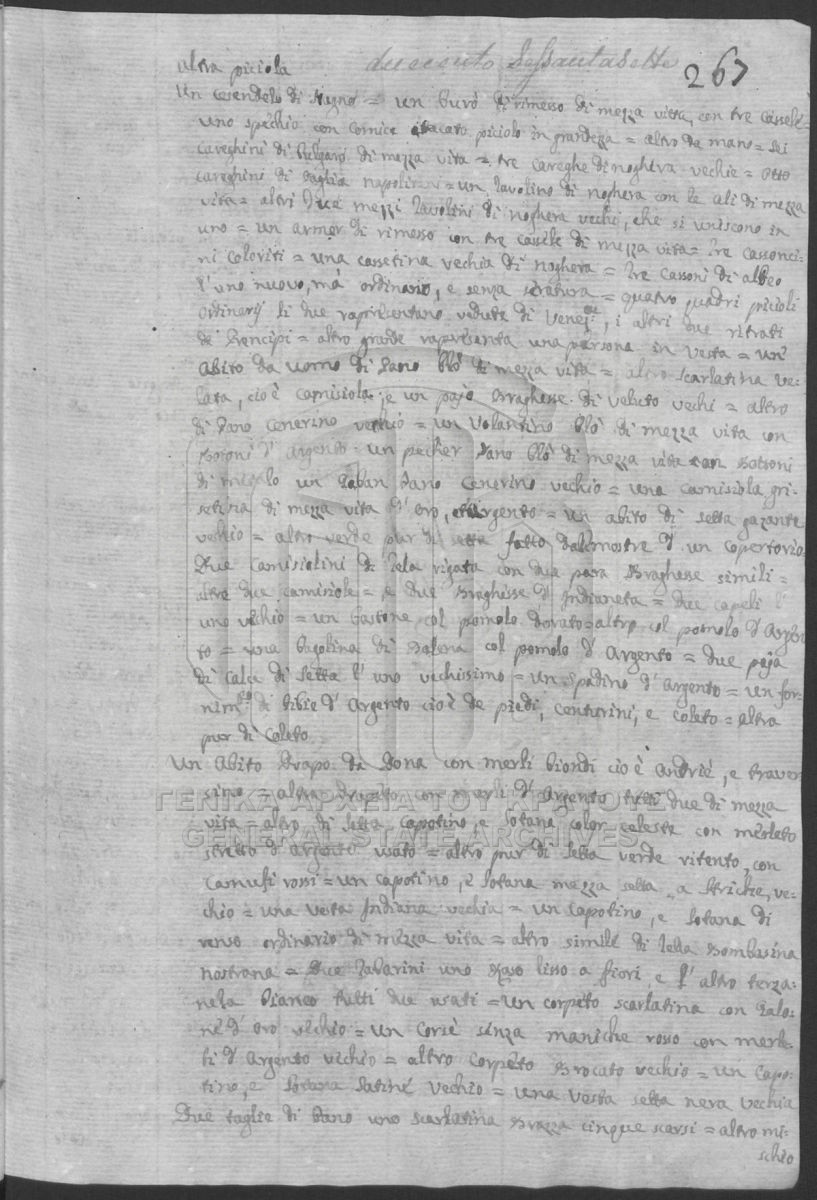 altra piciola
ducento Sessantasette 267
Un cesendelo di stagno = un burò di rimesso di mezza vita, con tre cassele =
uno spechio con cornice piciolo in grandezza = altro da mano = sei
careghini di bulgaro di mezza vita = tre careghe di noghera vechie = otto
careghini di paglia napolitani = un tavolino di noghera con le ali di mezza
vita = altri due mezzi tavolini di noghera vechi, che si uniscono in
uno = un armer di rimesso con tre cassele di mezza vita = tre cassonci-
ni coloriti = una cassetina vechia di noghera = tre cassoni di albeo
l'uno nuovo, mà ordinario, e senza seratura = quatro quadri picioli
ordinarij li due rapresentano vedute di Venezia, i altri due ritrati
de Prencipi = altro grande rapresenta una persona in vesta = un'
abito da uomo di pano blò di mezza vita = altro scarlatina ve-
lata, cioè camisiola, e un pajo braghesse di veluto vechi = altro
di pano cenerino vechio = un volantino blò di mezza vita con
botoni d'argento = un pechêr pano blò di mezza vita con botoni
di un gaban pano cenerino vechio = una camisiola gri-
setina di mezza vita d'oro, et argento = un abito di setta gazante
vechio = altro verde pur di setta fatto dalle mostre d'un copertorio
Due camisiolini di tela rigata con due para braghesse simili =
altre due camisiole = e due braghesse d'Indianeta = due capeli l'
uno vechio = un bastone col pomolo dorato = altro col pomolo d'Argen-
to = una bagolina di balena col pomolo d'Argento = due paja
di calce di setta l'uno vechissimo = un spadino d'Argento = un for-
nim.to di fibie d'Argento cioè da piedi, centurini, e coleto = altra
pur di coleto
Un Abito drapo da dona con merli biondi cioè andriè, e traver-
sino = altro drapeto con merli d'Argento tutti due di mezza
vita = altro di setta capotino, e sotana color celeste con merleto
stretto d'argento usato = altro pur di setta verde ritento, con
camufi rossi = un capotino, e sotana mezza setta, a striche, ve-
chio = una vesta Indiana vechia = un capotino, e sotana di
renso ordinario di mezza vita = altro simile di tella bombasina
nostrana = Due tabarini uno raso lisso a fiori, e l'altro terza-
nela bianco tutti due usati = un corpeto scarlatina con galo-
ne d'oro vechio = un corsè senza maniche rosso con merle-
ti d'Argento vechio = altro corpèto brocato vechio = un capo-
tino, e sotana satinè vechio = una vesta setta nera vechia
Due taglie di pano uno scarlatina brazza cinque scarsi = altro mi-
schio
ΓΕΝΙΚΑ ΑΡΧΕΙΑ ΤΟΥ ΚΡΑΤΟΥΣ
GENERAL STATE ARCHIVES